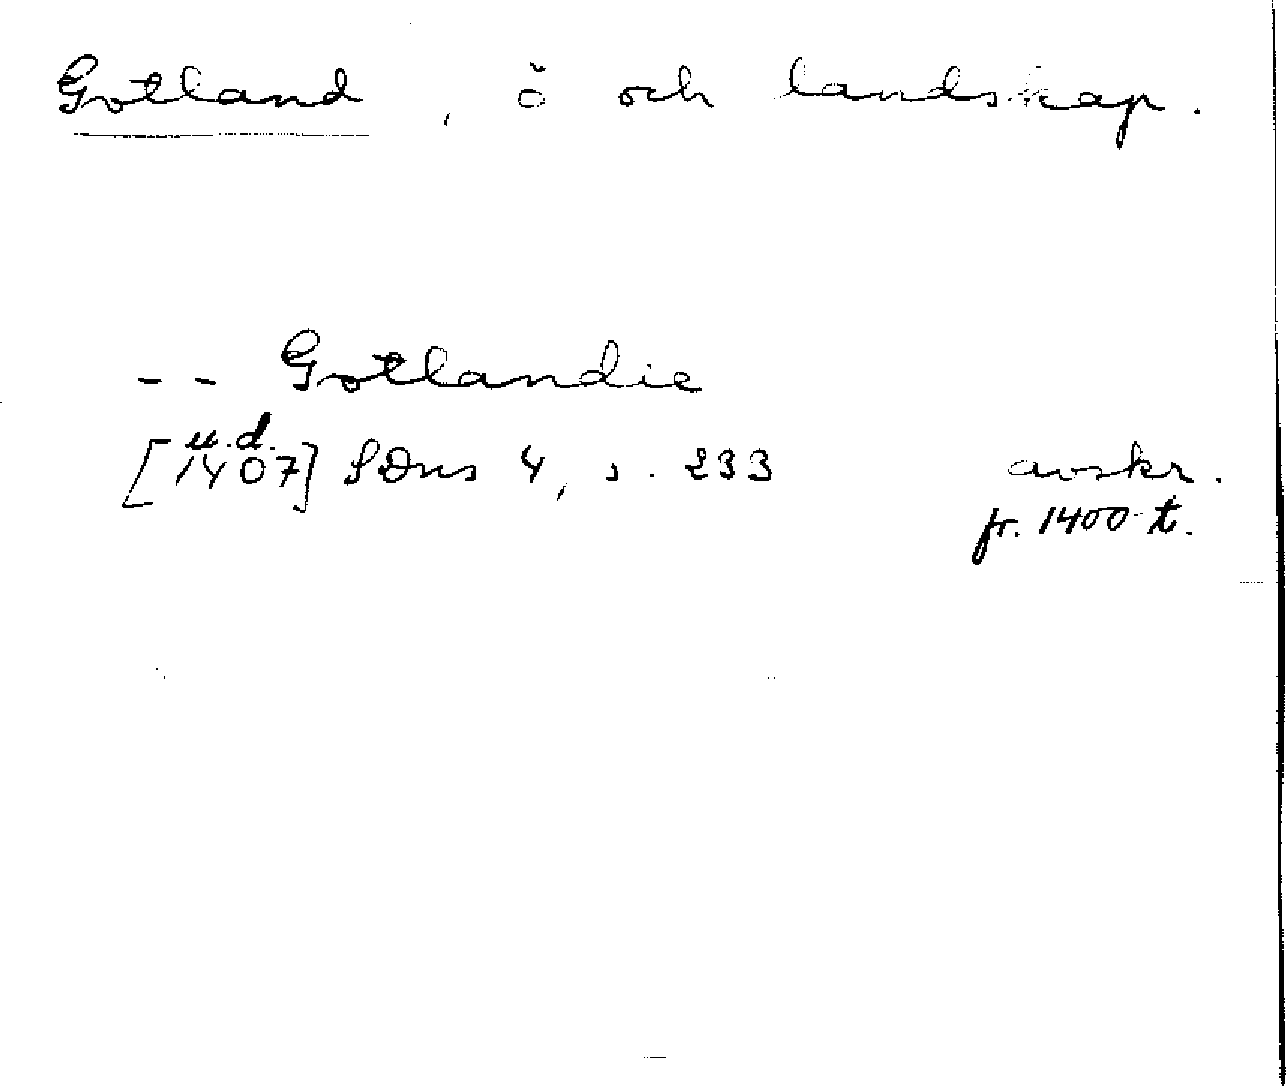 Gotland, ö och landskap.
-- Gotlandie
u.d.
[1407] SDns 4, s. 233 avskr.
fr. 1400-t.